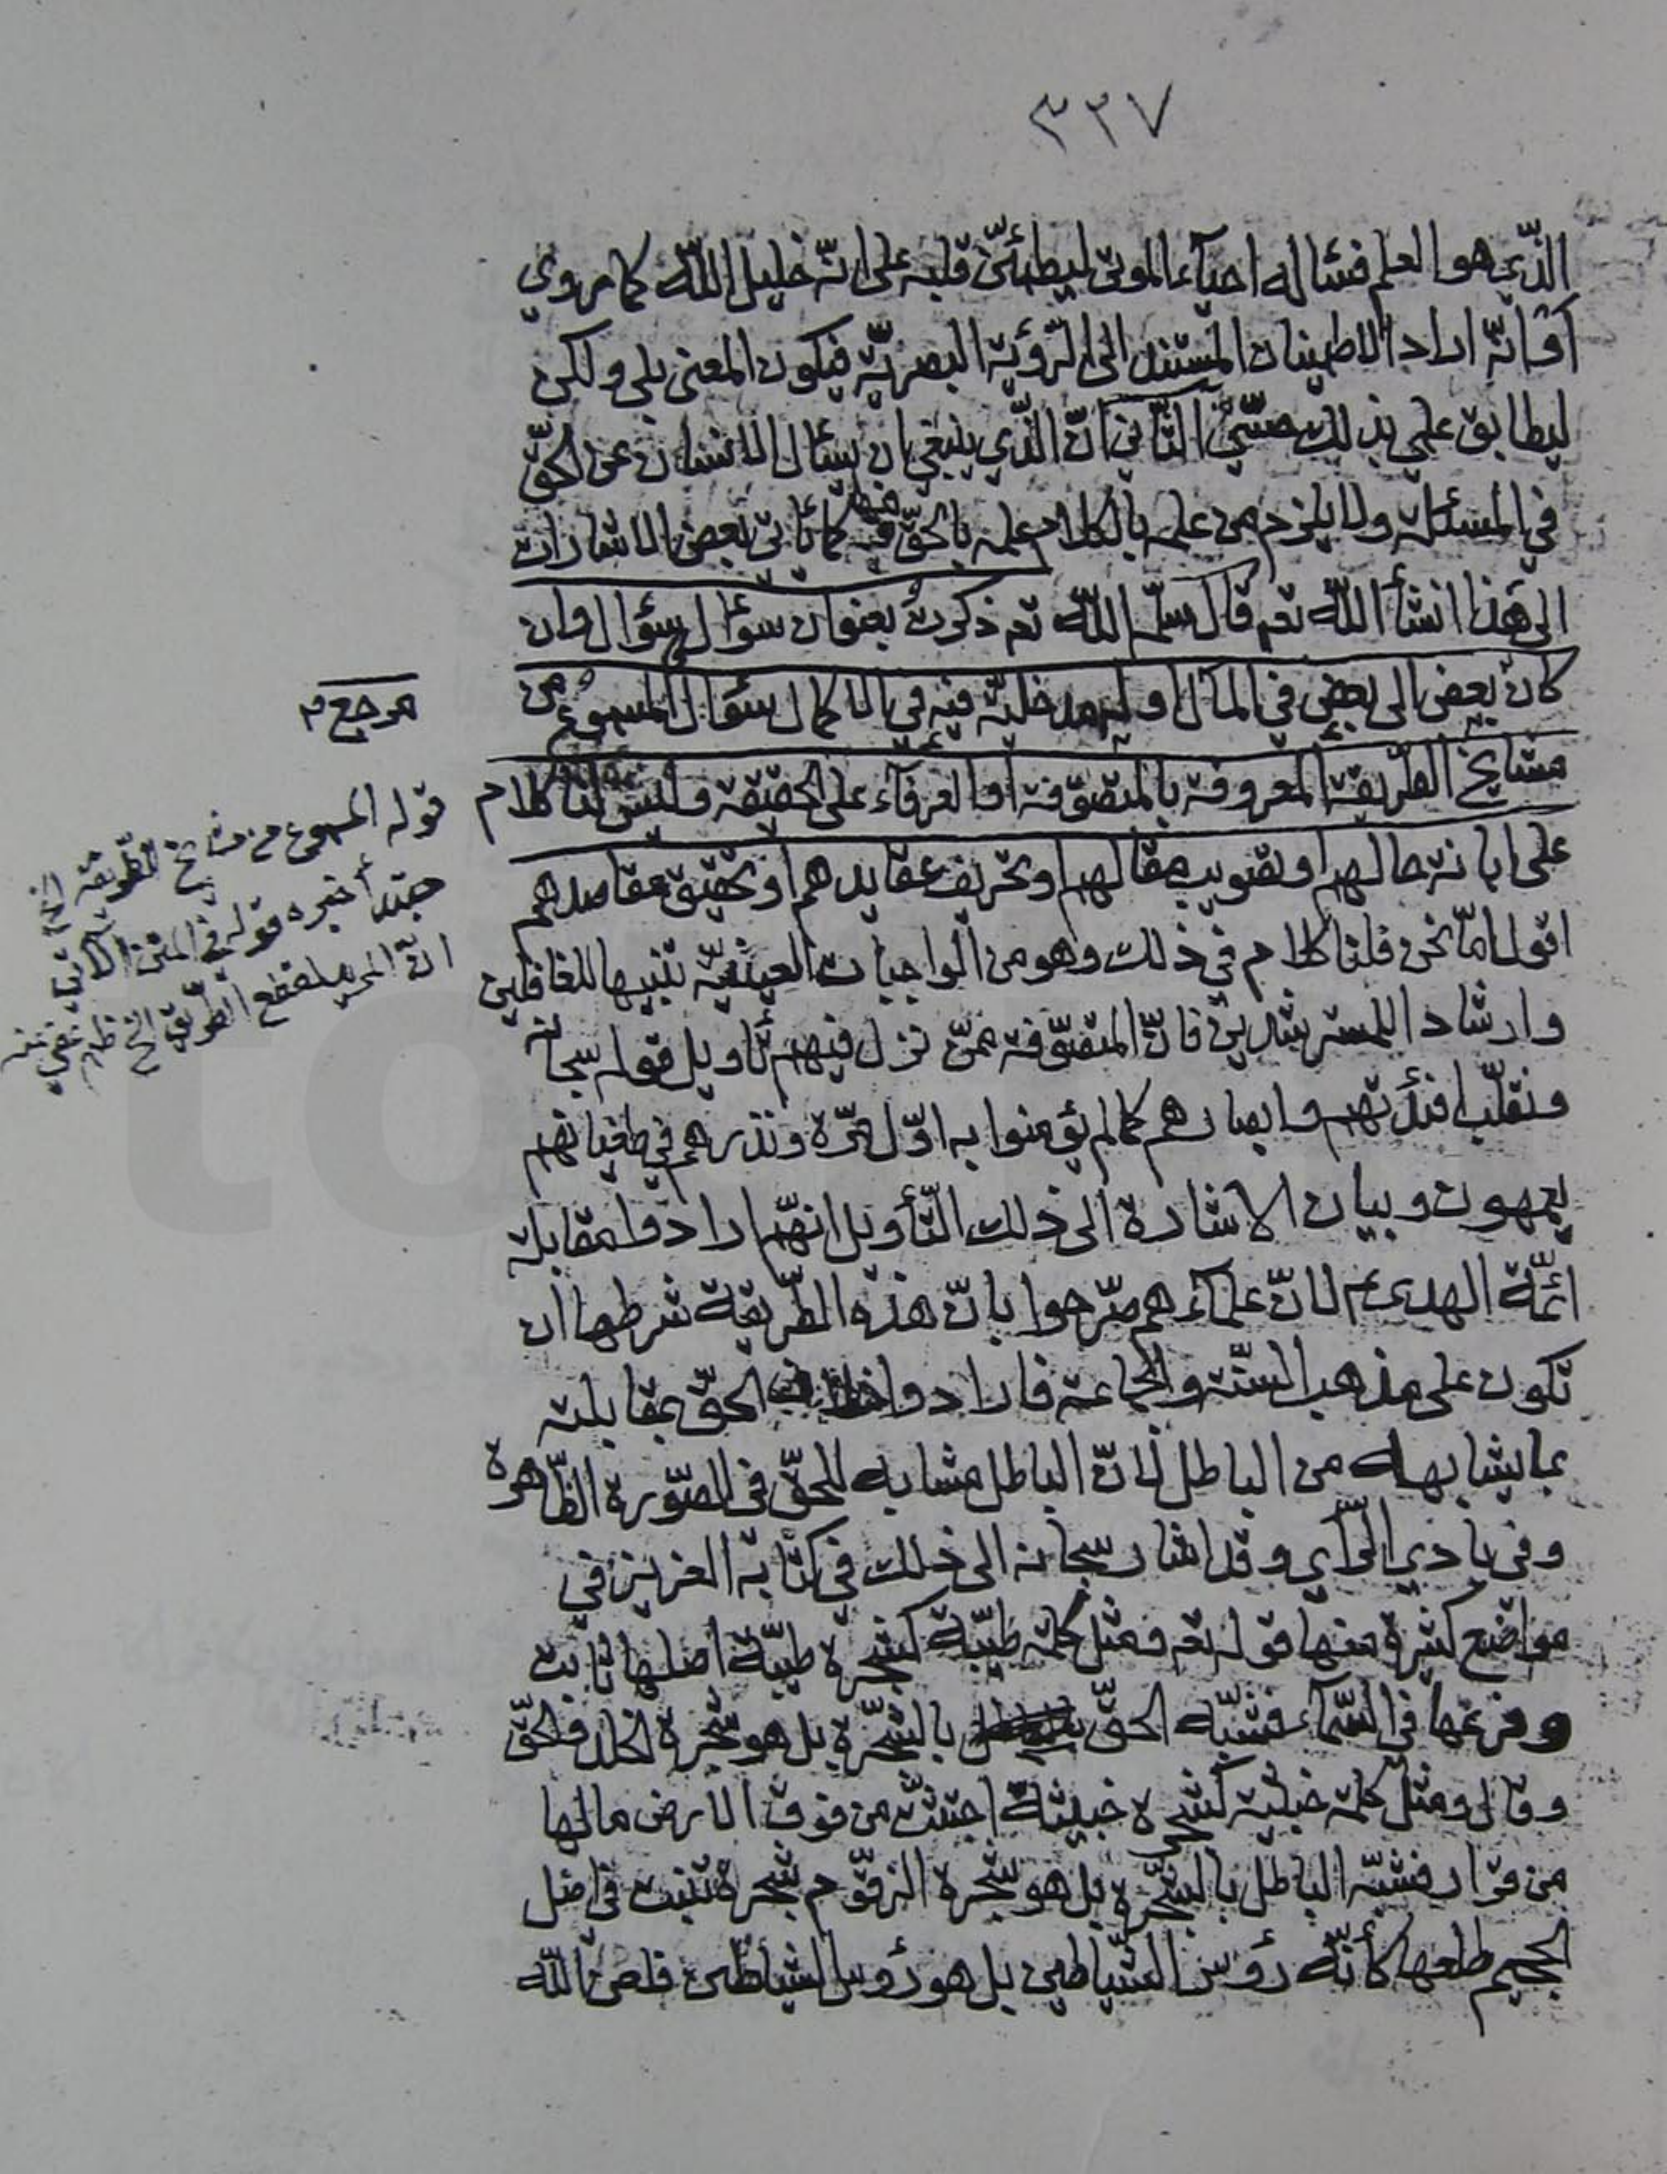 ٣٣٧
الذي هو العلم فسأله احيآء الموتى ليطمئنّ قلبه على انّه خليل الله كما روي
او انّه اراد الاطمينان المستند الى الرّؤية البصريّة فيكون المعنى بلى ولكن
ليطابق علمي بذلك حسّي الثّاني انّ الّذي ينبغي ان يسأل الانسان عن الحقّ
في المسئلة ولا يلزم من علمه بالكلام علمه بالحقّ فيها كما يأتي بعض الاشارات
الى هذا انشأ الله تعم قال سلّمه الله تعم ذكرت بعنوان سؤال سؤال وان
كان بعض الى بعض في المآل اوله مدخليّة فيه في الاكمال سؤال المسموع من
مشايخ الطريقة المعروفة بالمتصوّفة او العرفآء على الحقيقة وليس لنا كلام
على ابانة حالهم او تصويب مقالهم او تحريف عقايدهم او تحقيق مقاصدهم
اقول امّا نحن فلنا كلام في ذلك وهو من الواجبات العينيّة تنبيها للغافلين
وارشادا للمسترشدين فانّ المتصوّفة ممّن نزل فيهم تأويل قوله سبحانه
ونقلّب افئدتهم وابصارهم كما لم يؤمنوا به اوّل مرّة ونذرهم في طغيانهم
يعمهون وبيان الاشارة الى ذلك التّأويل انهّم ارادوا مقابلة
ائمّة الهدى عم لانّ علمآءهم صرّحوا بانّ هذه الطّريقة شرطها ان
تكون على مذهب السنّة والجماعة فارادوا الحقّ بمقابلته
بما يشابهه من الباطل لانّ الباطل مشابه للحقّ في الصّورة الظّاهرة
وفي بادي الرّأي وقد اشار سبحانه الى ذلك في كتابه العزيز في
مواضع كثيرة منها قوله تعم ومثل كلمة طيّبة كشجرة طيّبة اصلها ثابت
وفرعها في السّمآء فشبّه الحقّ بالشّجرة بل هو شجرة الخلد والحقّ
وقال ومثل كلمة خبيثة كشجرة خبيثة اجتثّت من فوق الارض مالها
من قرار فشبّه الباطل بالشّجرة بل هو شجرة الزقّوم شجرة تنبت في اصل
الجحيم طلعها كأنّه رؤس الشّياطين بل هو رؤس الشياطين فلعن الله
مرجع م
قوله المسموع من مشايخ الطّريقة الخ
مبتدأ خبره قوله في المتن الآتي
انّ المريد الطّريق الخ